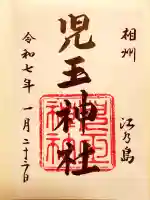 相州
江乃島
児玉神社
令和七年 一月二十日